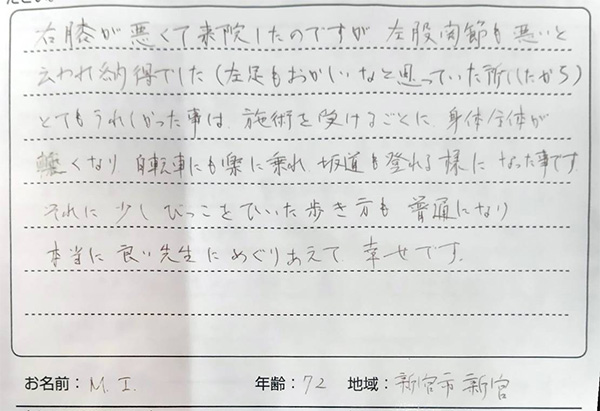 右膝が悪くて来院したのですが 左股関節も悪いと
云われ納得でした(左足もおかしいなと思っていた所でしたから)
とてもうれしかった事は、施術を受けるごとに、身体全体が
軽くなり 自転車にも楽に乗れ 坂道も登れる様になった事です。
それに少しびっこをひいた歩き方も 普通になり
本当に良い先生にめぐりあえて 幸せです。
お名前：M. I. 年齢：72 地域：新宮市新宮